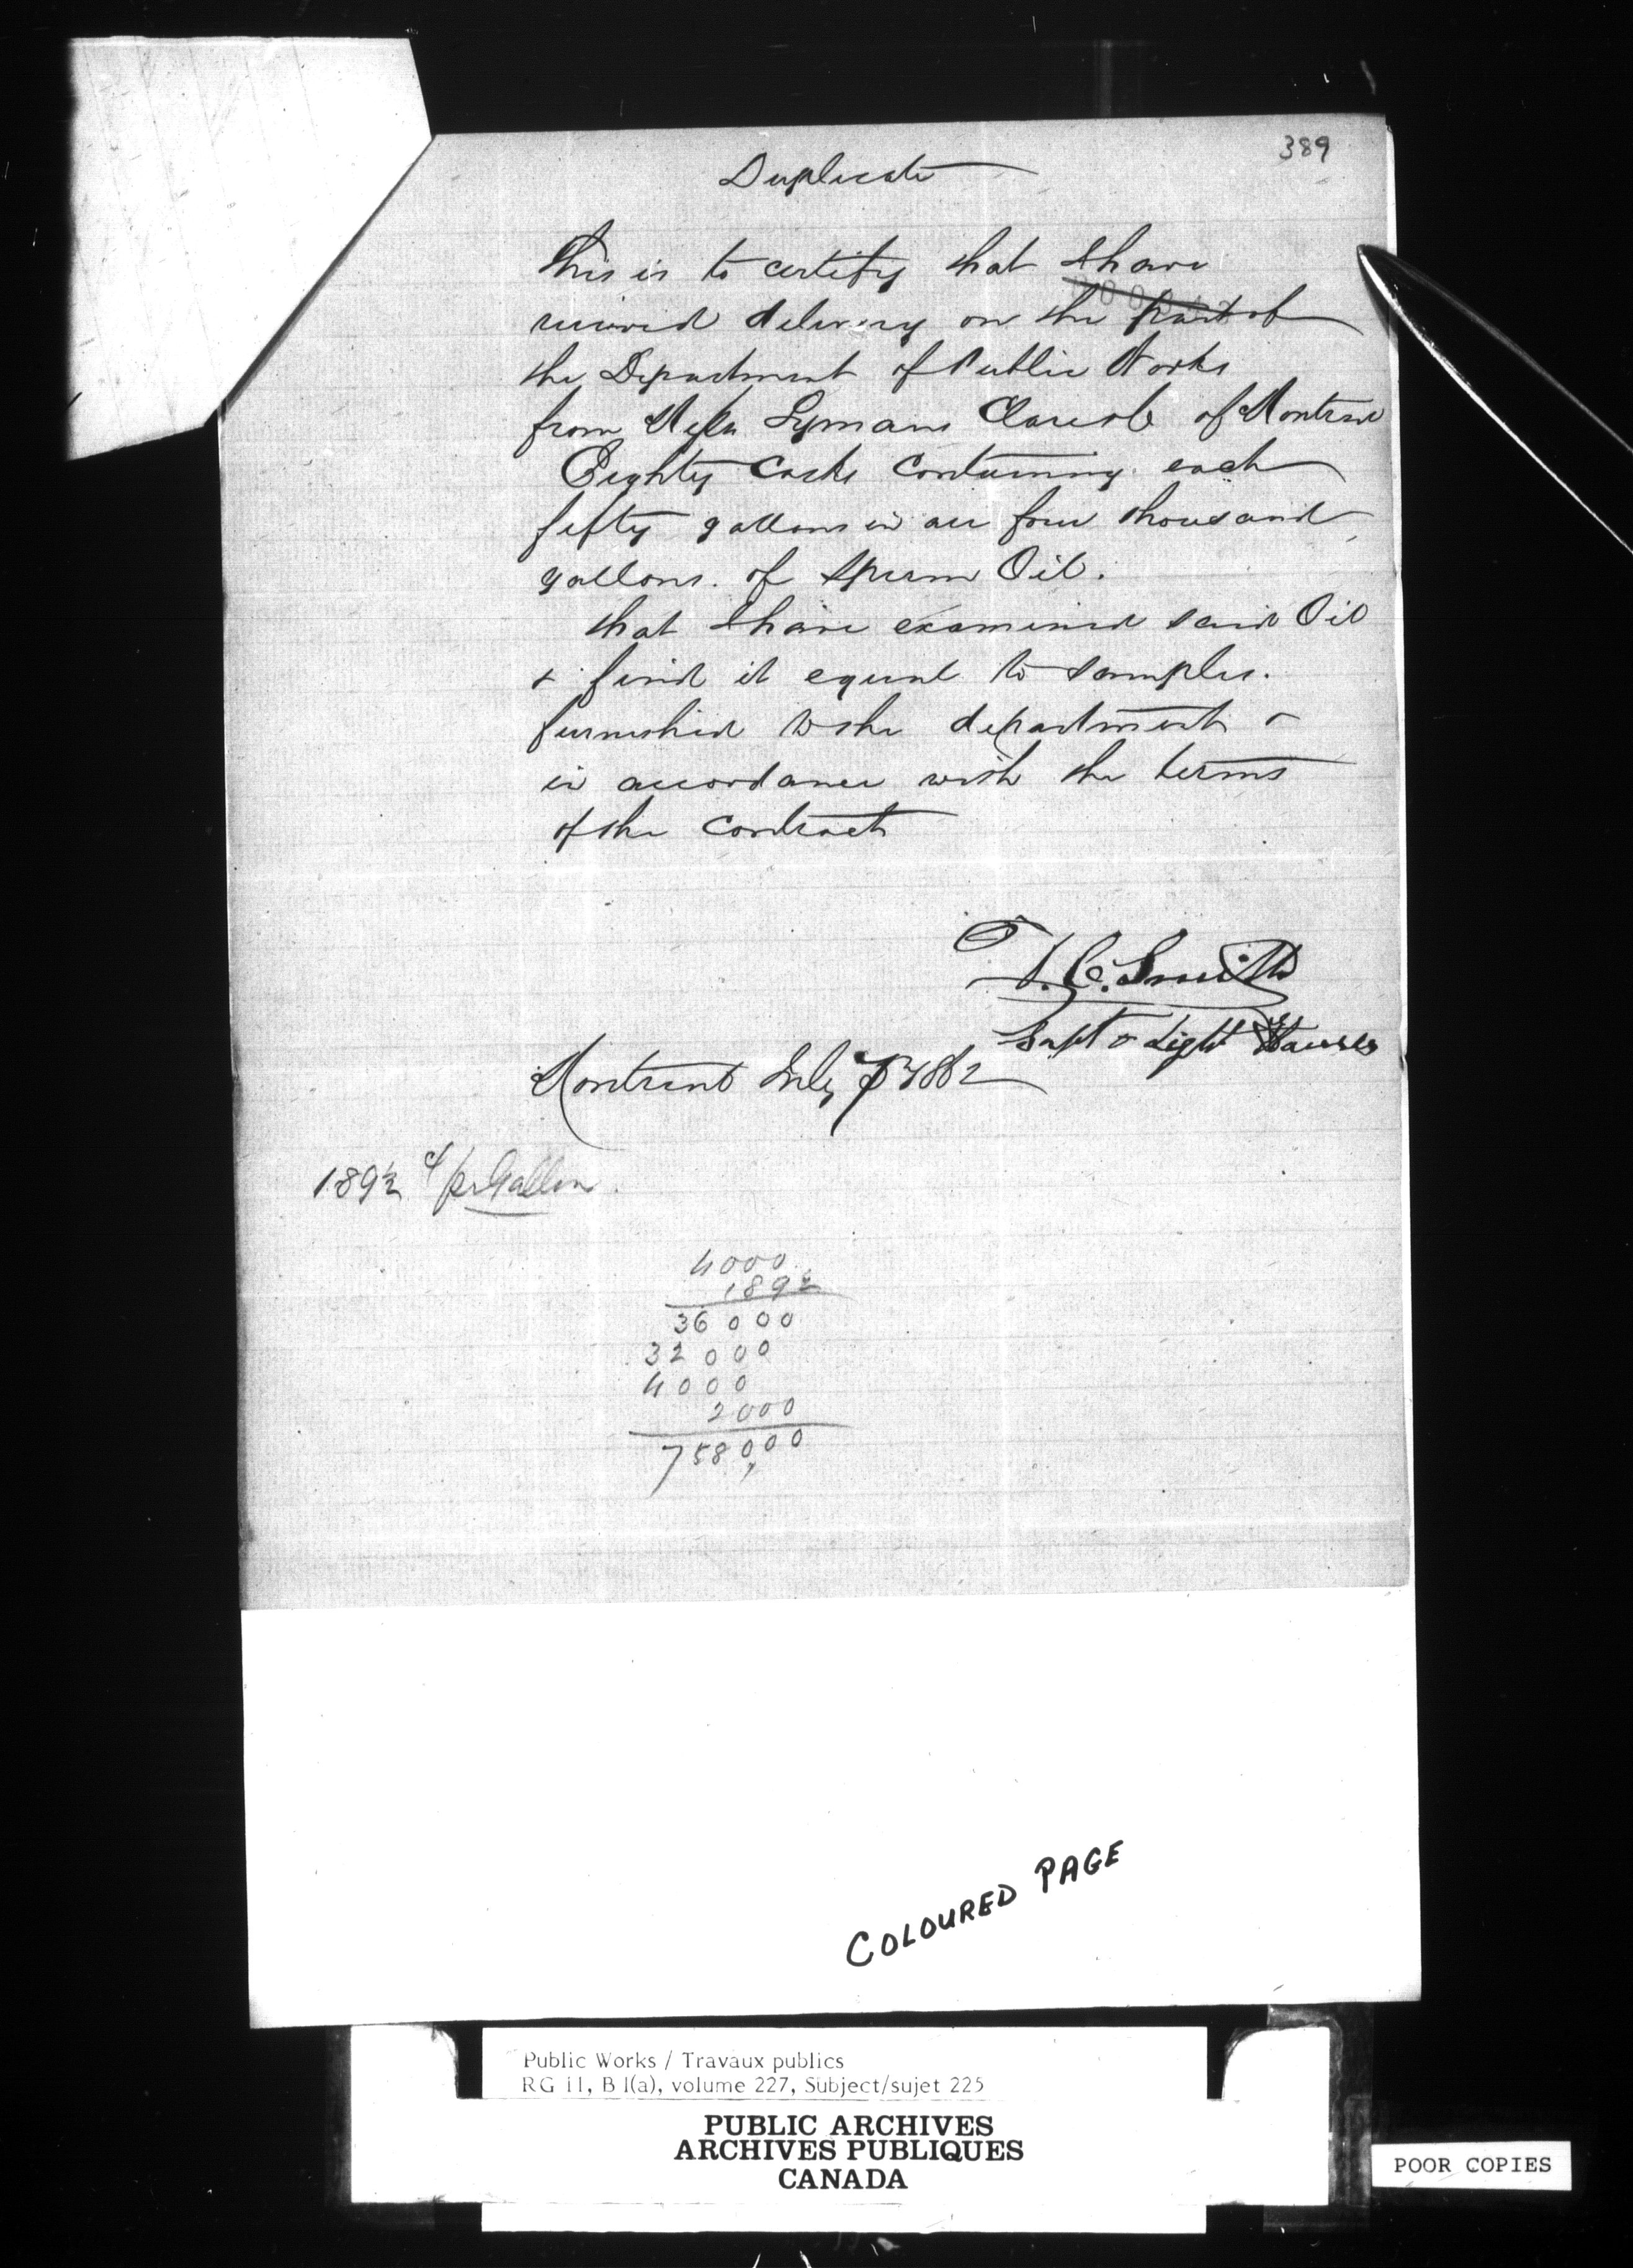 389
Duplicate
This is to certify that I have
received delivery on the part of
the Department of Public Works
from Messrs Lymans Clare & Co of Montreal
Eighty Casks Containing each
fifty gallons in all four thousand
gallons. of Sperm Oil.
that I have examined said Oil
& find it equal to samples.
furnished to the department &
in accordance with the terms
of the Contract
T. C. Smith
Supt Light Houses
Montreal July 1862
189½ cts/per Gallon.
4000
189½
36000
32000
4000
2000
758000
COLOURED PAGE
Public Works / Travaux publics
RG 11, B 1(a), volume 227, Subject/sujet 225
PUBLIC ARCHIVES
ARCHIVES PUBLIQUES
CANADA
POOR COPIES